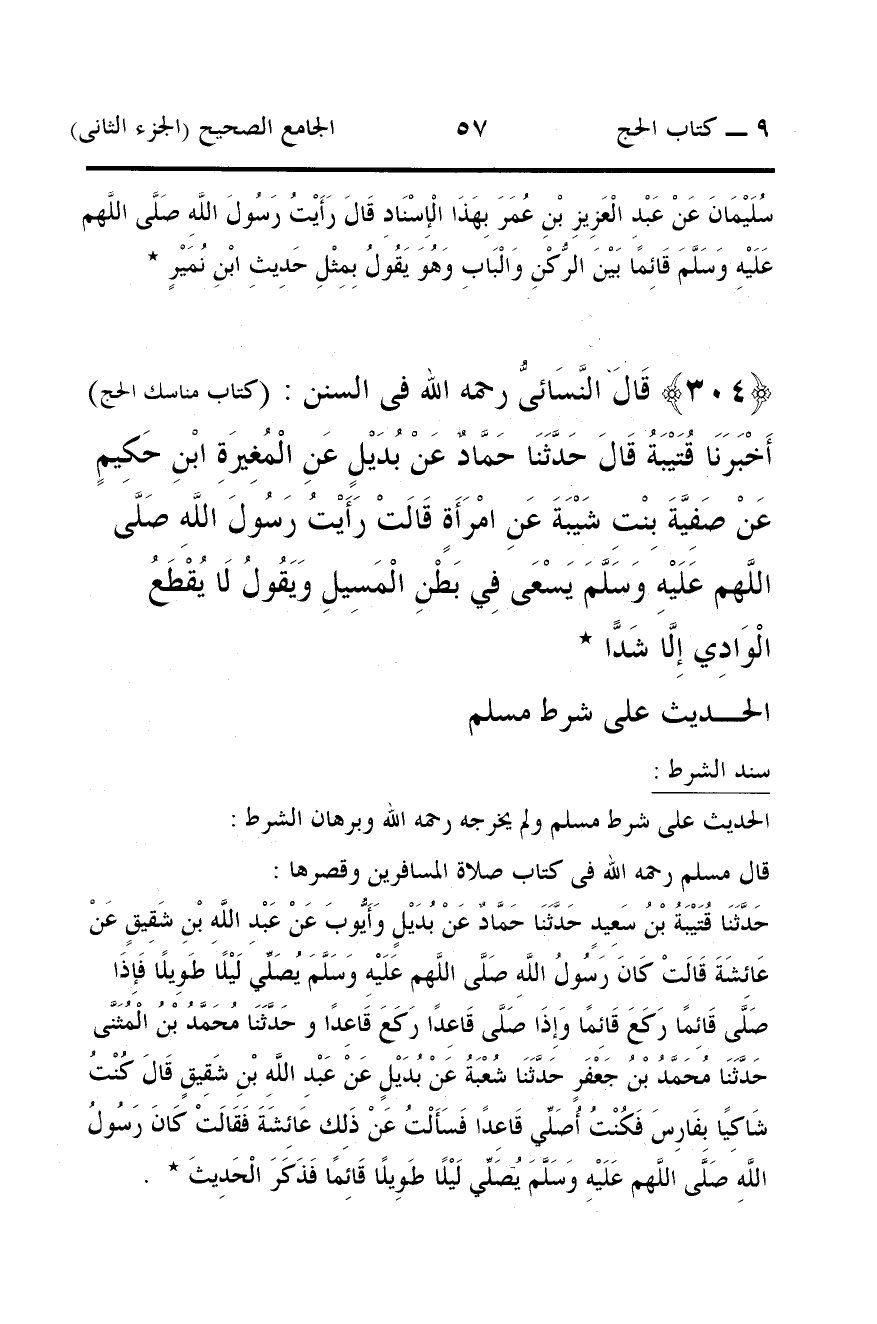 ٩ ـــ كتاب الحج ٥٧ الجامع الصحيح (الجزء الثانى)
سُلَيْمَانَ عَنْ عَبْدِ الْعَزِيزِ بْنِ عُمَرَ بِهَذَا الْإِسْنَادِ قَالَ رَأَيْتُ رَسُولَ اللَّهِ صَلَّى اللَّهم
عَلَيْهِ وَسَلَّمَ قَائِمًا بَيْنَ الرُّكْنِ وَالْبَابِ وَهُوَ يَقُولُ بِمِثْلِ حَدِيثِ ابْنِ نُمَيْرٍ *
﴿٣٠٤﴾ قَالَ النَّسَائىُّ رحمه الله فى السنن : (كتاب مناسك الحج)
أَخْبَرَنَا قُتَيْبَةُ قَالَ حَدَّثَنَا حَمَّادٌ عَنْ بُدَيْلٍ عَنِ الْمُغِيرَةِ ابْنِ حَكِيمٍ
عَنْ صَفِيَّةَ بِنْتِ شَيْبَةَ عَنِ امْرَأَةٍ قَالَتْ رَأَيْتُ رَسُولَ اللَّهِ صَلَّى
اللَّهم عَلَيْهِ وَسَلَّمَ يَسْعَى فِي بَطْنِ الْمَسِيلِ وَيَقُولُ لَا يُقْطَعُ
الْوَادِي إِلَّا شَدًّا *
الحـــديث على شرط مسلم
سند الشرط :
الحديث على شرط مسلم ولم يخرجه رحمه الله وبرهان الشرط :
قال مسلم رحمه الله فى كتاب صلاة المسافرين وقصرها :
حَدَّثَنَا قُتَيْبَةُ بْنُ سَعِيدٍ حَدَّثَنَا حَمَّادٌ عَنْ بُدَيْلٍ وَأَيُّوبَ عَنْ عَبْدِ اللَّهِ بْنِ شَقِيقٍ عَنْ
عَائِشَةَ قَالَتْ كَانَ رَسُولُ اللَّهِ صَلَّى اللَّهم عَلَيْهِ وَسَلَّمَ يُصَلِّي لَيْلًا طَوِيلًا فَإِذَا
صَلَّى قَائِمًا رَكَعَ قَائِمًا وَإِذَا صَلَّى قَاعِدًا رَكَعَ قَاعِدًا و حَدَّثَنَا مُحَمَّدُ بْنُ الْمُثَنَّى
حَدَّثَنَا مُحَمَّدُ بْنُ جَعْفَرٍ حَدَّثَنَا شُعْبَةُ عَنْ بُدَيْلٍ عَنْ عَبْدِ اللَّهِ بْنِ شَقِيقٍ قَالَ كُنْتُ
شَاكِيًا بِفَارِسَ فَكُنْتُ أُصَلِّي قَاعِدًا فَسَأَلْتُ عَنْ ذَلِكَ عَائِشَةَ فَقَالَتْ كَانَ رَسُولُ
اللَّهِ صَلَّى اللَّهم عَلَيْهِ وَسَلَّمَ يُصَلِّي لَيْلًا طَوِيلًا قَائِمًا فَذَكَرَ الْحَدِيثَ * .